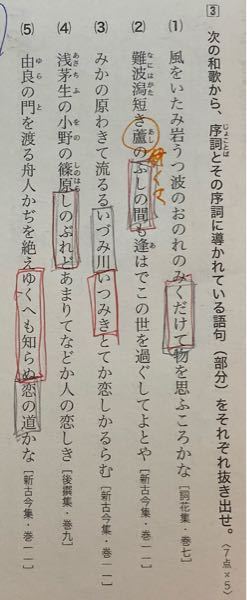 3 次の和歌から、序詞とその序詞に導かれている語句(部分)をそれぞれ抜き出せ。〈7点×5〉
じょことば
(1) 風をいたみ岩うつ波のおのれのみくだけて物を思ふころかな [詞花集・巻七]
(2) 難波潟短き蘆のふしの間も逢はでこの世を過ぐしてよとや [新古今集・巻一一]
なにはがた あし あ
短くて
(3) みかの原わきて流るるいづみ川いつみきとてか恋しかるらむ [新古今集・巻一一]
(4) 浅茅生の小野の篠原しのぶれどあまりてなどか人の恋しき [後撰集・巻九]
あさぢふ をの しのはら
(5) 由良の門を渡る舟人かぢを絶えゆくへも知らぬ恋の道かな [新古今集・巻一一]
ゆら と